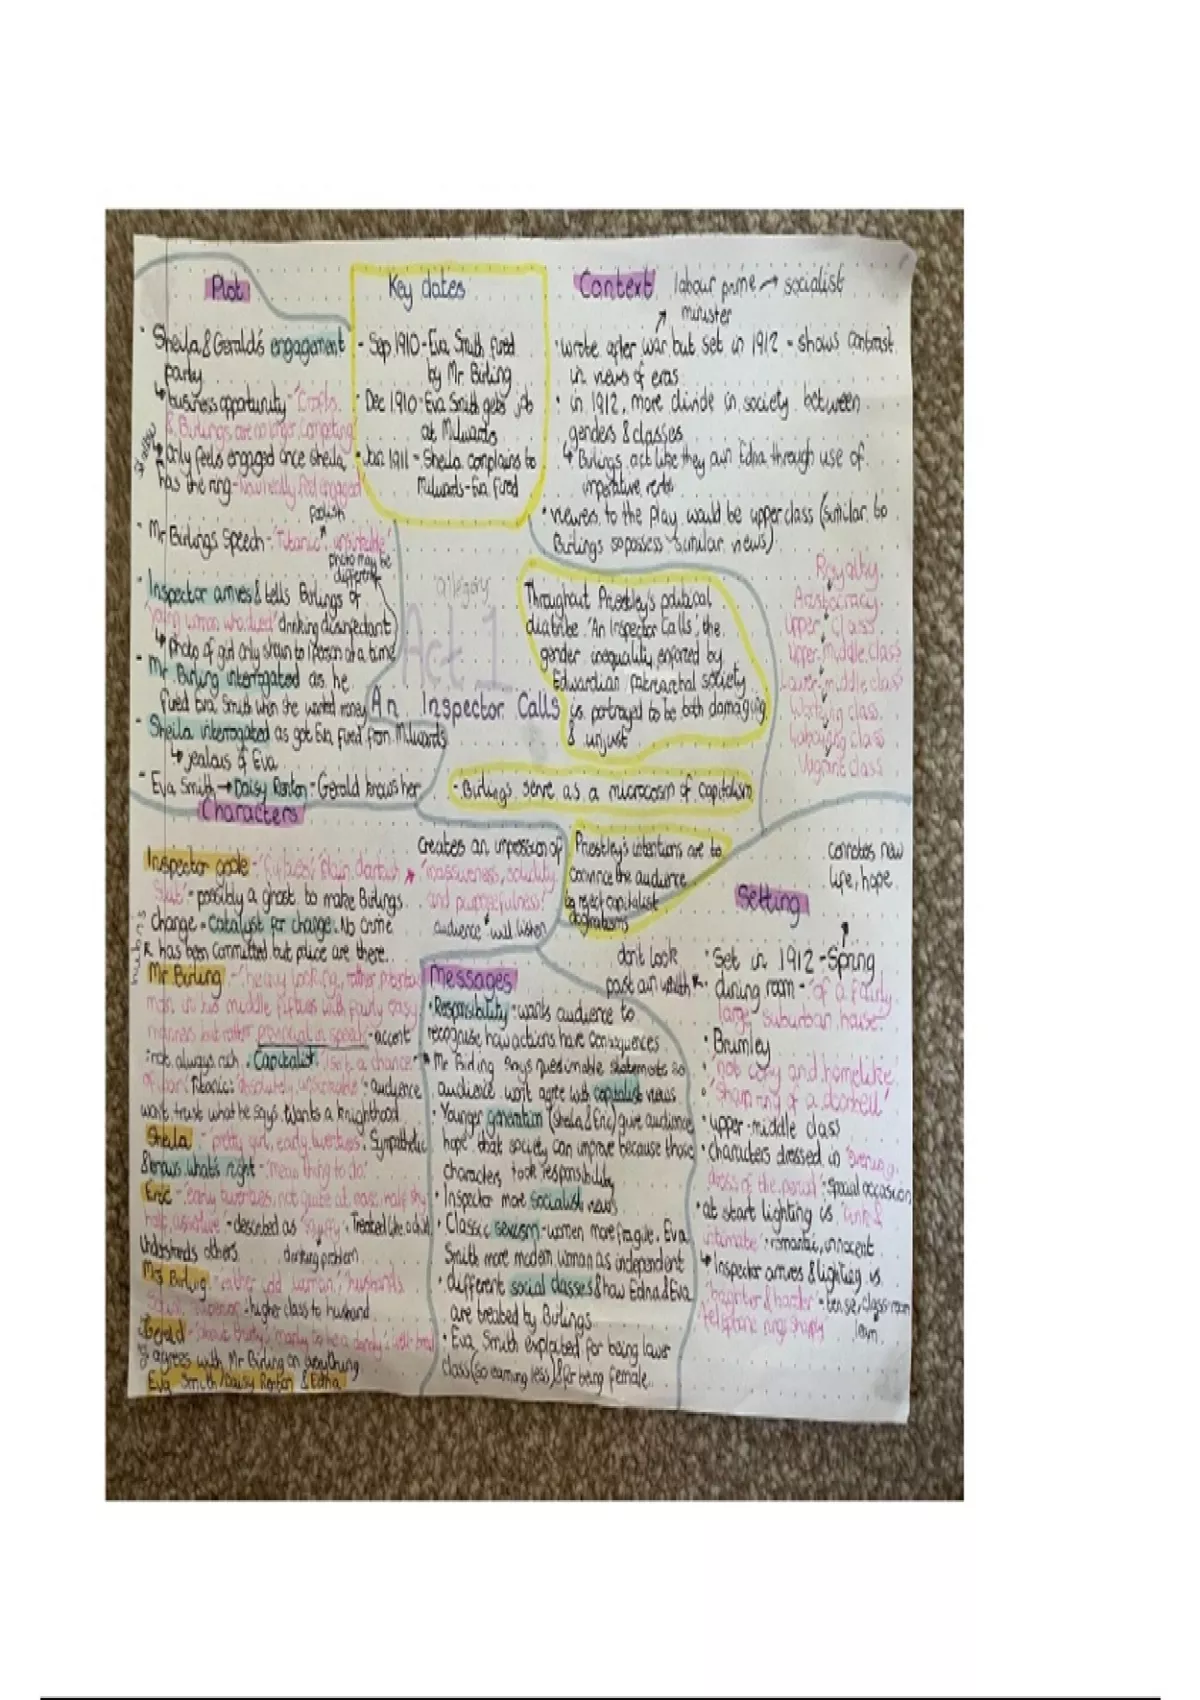 Plot
Sheila & Gerald's engagement
party
↳ business opportunity - 'Crofts
& Birlings are no longer competing'
↳ Only feels engaged once Sheila
has the ring - 'Now really feel engaged'
Mr Birling's Speech - 'Titanic' 'unsinkable'
photo may be
different
Inspector arrives & tells Birlings of
'young woman who died' drinking disinfectant
↳ photo of girl only shown to 1 person at a time
- Mr. Birling interrogated as he
fired Eva Smith when she wanted money
- Sheila interrogated as got Eva fired from Milwards
↳ jealous of Eva
- Eva Smith → Daisy Renton - Gerald knows her
Key dates
- Sep 1910 - Eva Smith fired
by Mr Birling
• Dec 1910 - Eva Smith gets job
at Milwards
• Jan 1911 - Sheila complains to
Milwards - Eva fired
Context
labour prime → socialist
minister
• wrote after war but set in 1912 - shows contrast
in views of eras
• in 1912, more divide in society between
genders & classes
↳ Birlings act like they own Edna through use of
imperative verbs
• viewers to the play would be upper class (similar to
Birlings so possess similar views)
Royalty
Aristocracy
Upper Class
Upper-middle class
Lower-middle class
Working class
Labouring class
Vagrant class
allegory
Act 1
An Inspector Calls
Throughout Priestley's political
diatribe 'An Inspector Calls', the
gender inequality enforced by
Edwardian patriarchal society
is portrayed to be both damaging
& unjust
- Birlings serve as a microcosm of capitalism
Priestley's intentions are to
convince the audience
to reject capitalist
dogmatisms
Characters
Inspector goole - 'fifties' 'plain darkish
suit' - possibly a ghost to make Birlings
change - catalyst for change. No crime
has been committed but police are there.
creates an impression of
'massiveness, solidity
and purposefulness'
audience will listen
Mr Birling - 'heavy looking, rather portentous
man in his middle fifties with fairly easy
manners but rather provincial in speech' - accent
: not always rich. Capitalist. 'Isn't a chance
of war' Titanic: 'absolutely unsinkable' : audience
wont trust what he says. Wants a knighthood
Sheila - 'pretty girl, early twenties'. Sympathetic
& knows what's right - 'mean thing to do'
Eric - 'early twenties, not quite at ease, half shy
half assertive' - described as 'squiffy'. Treated like a child
Understands others
drinking problem
Mrs Birling - 'rather cold woman', 'husband's
social superior' - higher class to husband
Gerald - 'about thirty', 'manly to be a dandy', 'well-bred'
↳ agrees with Mr Birling on anything
Eva Smith/Daisy Renton & Edna
Messages
• Responsibility - wants audience to
recognise how actions have consequences
• Mr Birling says questionable statements so
audience wont agree with capitalist views
• Younger generation (Sheila & Eric) give audience
hope that society can improve because those
characters took responsibility
• Inspector more socialist views
• Classic sexism - women more fragile. Eva
Smith more modern woman as independent
• different social classes & how Edna & Eva
are treated by Birlings
• Eva Smith exploited for being lower
class (so earning less) & for being female
Setting
connotes new
life, hope
• Set in 1912 - Spring
dont look
past own wealth
• dining room - 'of a fairly
large suburban house'
• Brumley
• 'not cosy and homelike'
• 'Sharp ring of a doorbell'
• upper-middle class
• characters dressed in 'evening
dress of the period' : special occasion
• at start lighting is 'pink &
intimate' : romantic, innocent
↳ Inspector arrives & lighting is
'brighter & harder' - tense, classroom
'telephone rings sharply'